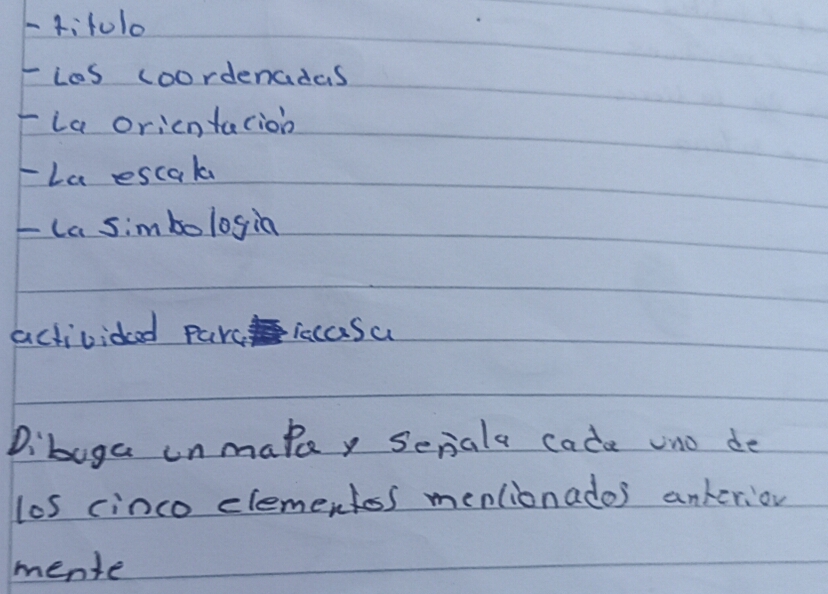 - titulo
- Las coordenadas
- La orientación
- La escala
- La simbologia
actividad para la casa
Dibuga un mapa y señala cada uno de
los cinco elementos mencionados anterior
mente